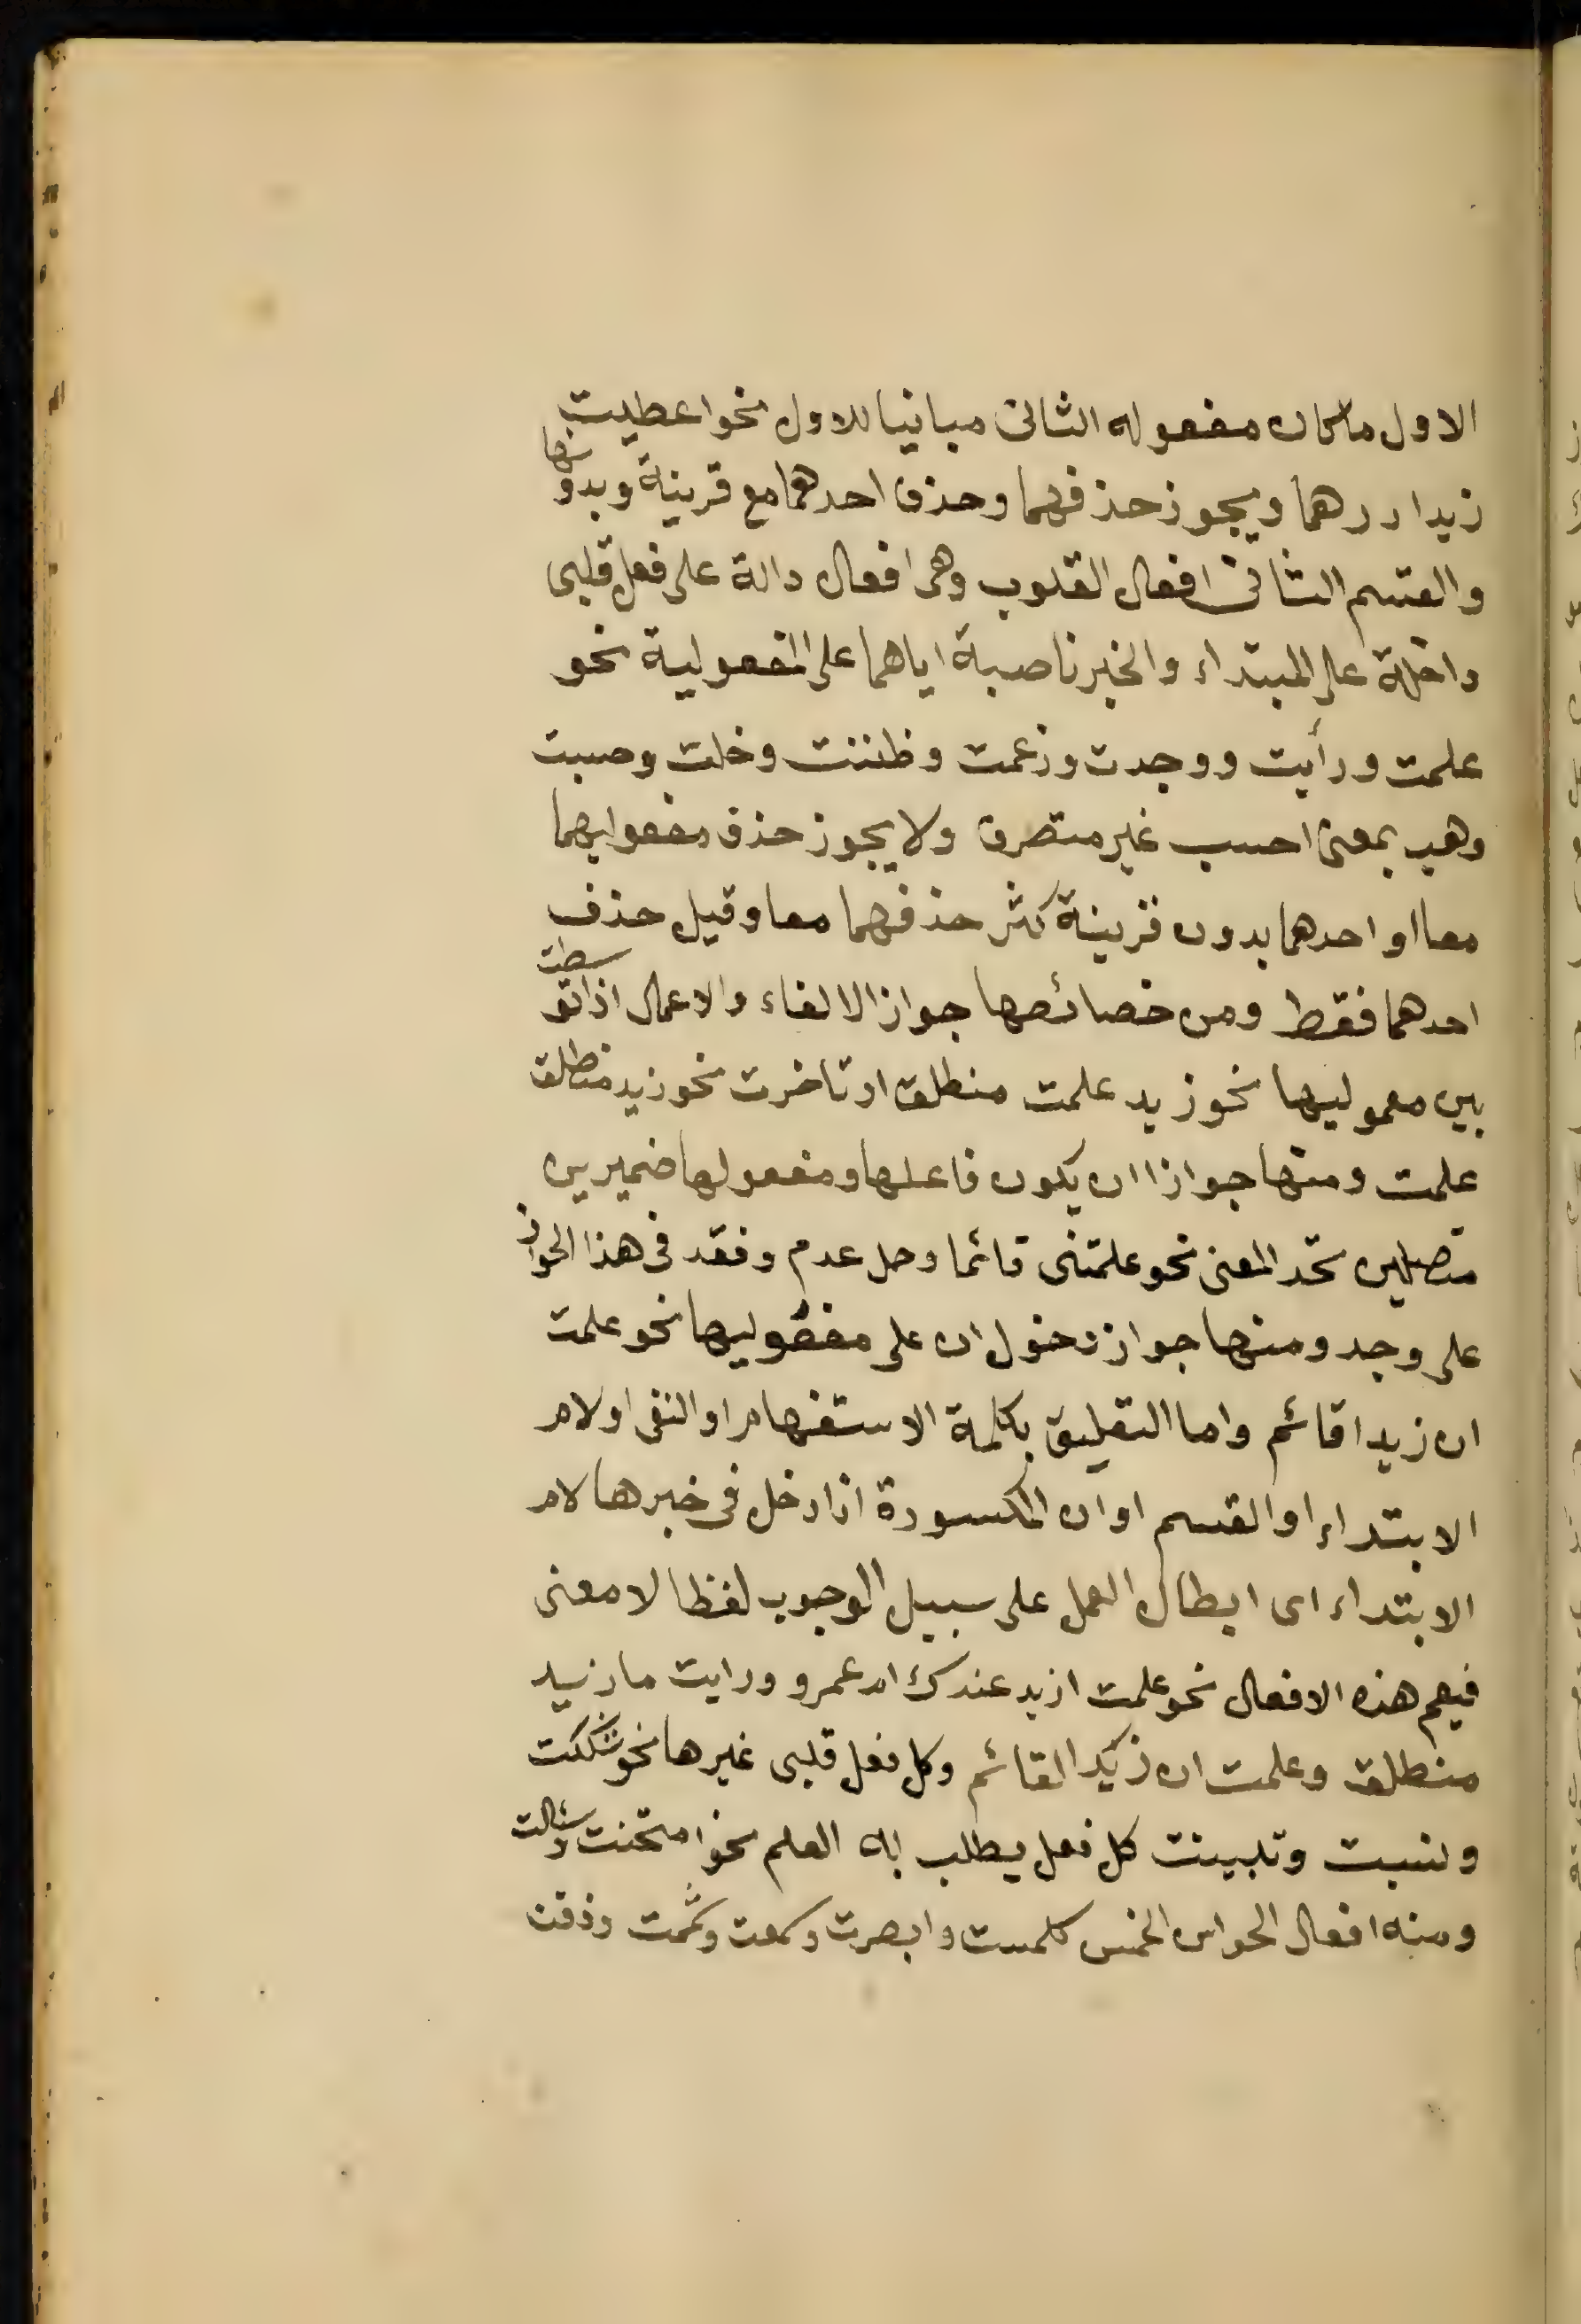 الاول ما كان مفعوله الثانى مباينا للاول نحو اعطيت
زيدا درهما ويجوز حذفهما وحذف احدهما مع قرينة وبدونها
والقسم الثانى افعال القلوب وهى افعال دالة على فعل قلبى
داخلة على المبتداء والخبر ناصبة اياهما على المفعولية نحو
علمت ورأيت ووجدت وزعمت وظننت وخلت وحسبت
وهب بمعنى احسب غير متصرف ولا يجوز حذف مفعوليهما
معا او احدهما بدون قرينة كثر حذفهما معا وقيل حذف
احدهما فقط ومن خصائصها جواز الالغاء والاعمال اذا توسطت
بين معموليها نحو زيد علمت منطلق او تاخرت نحو زيد منطلق
علمت ومنها جواز ان يكون فاعلها ومفعولها ضميرين
متصلين متحد المعنى نحو علمتنى قائما وحمل عدم وفقد فى هذا الجواز
على وجد ومنها جواز دخول ان على مفعوليها نحو علمت
ان زيدا قائم واما التعليق بكلمة الاستفهام او النفى او لام
الابتداء او القسم او ان المكسورة اذا دخل فى خبرها لام
الابتداء اى ابطال العمل على سبيل الوجوب لفظا لا معنى
فيعم هذه الافعال نحو علمت ازيد عندك ام عمرو ورايت ما زيد
منطلق وعلمت ان زيدا لقائم وكل فعل قلبى غيرها نحو شككت
ونسيت وتبينت كل فعل يطلب به العلم نحو امتحنت وسئالت
ومنه افعال الحواس الخمس كلمست وابصرت وسمعت وشممت وذقت